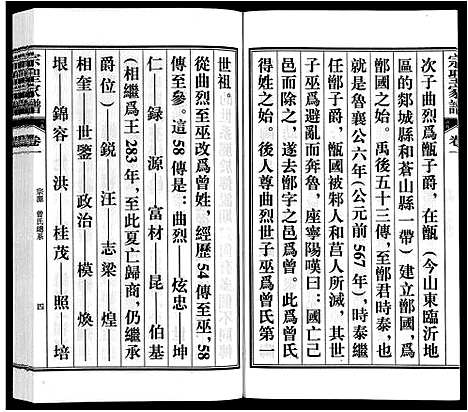 宗聖家譜 卷一
次子曲烈爲甑子爵，在甑（今山東臨沂地
區的郯城縣和蒼山縣一帶）建立鄫國，爲
鄫國之始。禹後五十三傳，至鄫君時泰，也
就是魯襄公六年（公元前 567 年），時泰繼
任鄫子爵，甑國被邾人和莒人所滅，其世
子巫爲避亂而奔魯，座寧陽嘆曰：國亡己
邑而除之，遂去鄫字之邑爲曾。此爲曾氏
得姓之始。後人尊曲烈世子巫爲曾氏第一
世祖。
從曲烈至巫改爲曾姓，經歷 54 傳至巫，58
傳至參。這 58 傳是：——炫忠——坤
仁——録 源——富材 昆 伯基
（相繼爲王 283 年，至此夏亡歸商，仍繼承
爵位）——鋭 汪 志梁——煌——
相奎——世鑒——政治 模——煥——
垠 錦容——洪 桂茂——照——培
宗聖家譜 卷一
宗源 曾氏總系
四